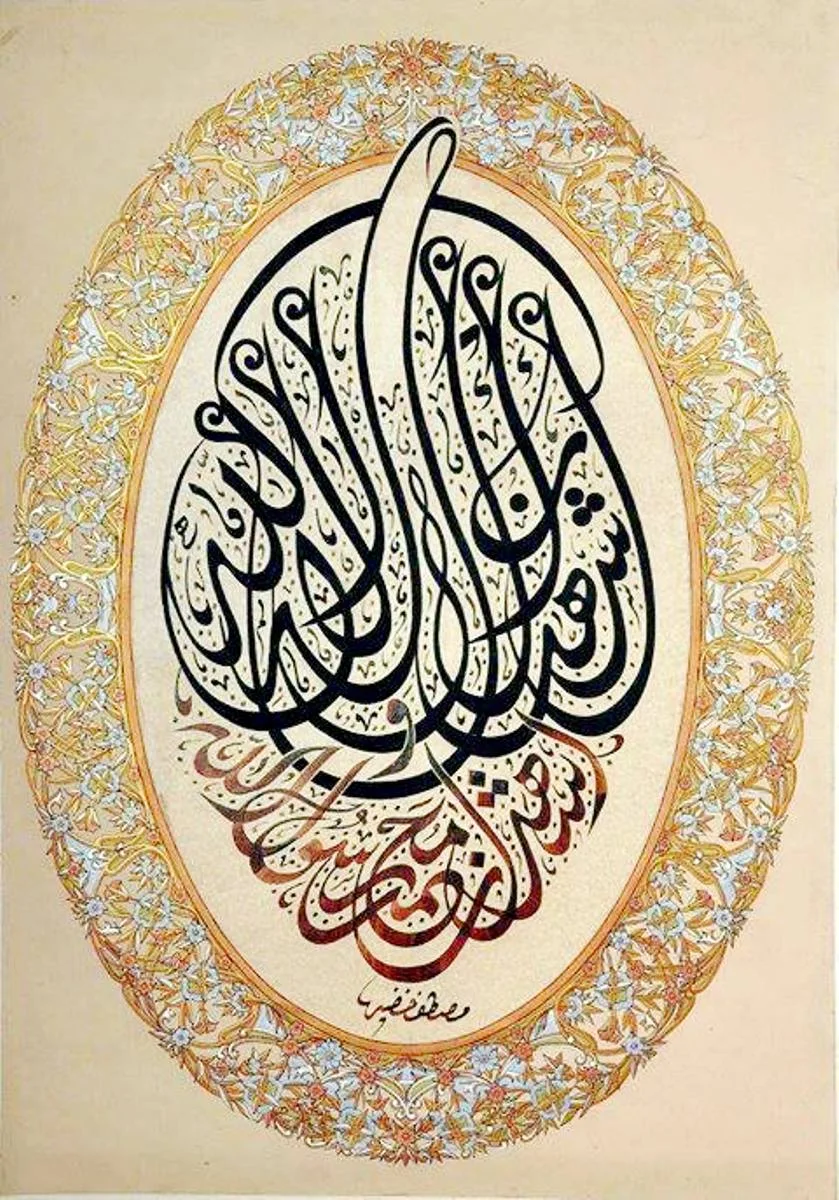 أشهد أن لا إله إلا الله
وأشهد أن محمد رسول الله
مصطفى خضير